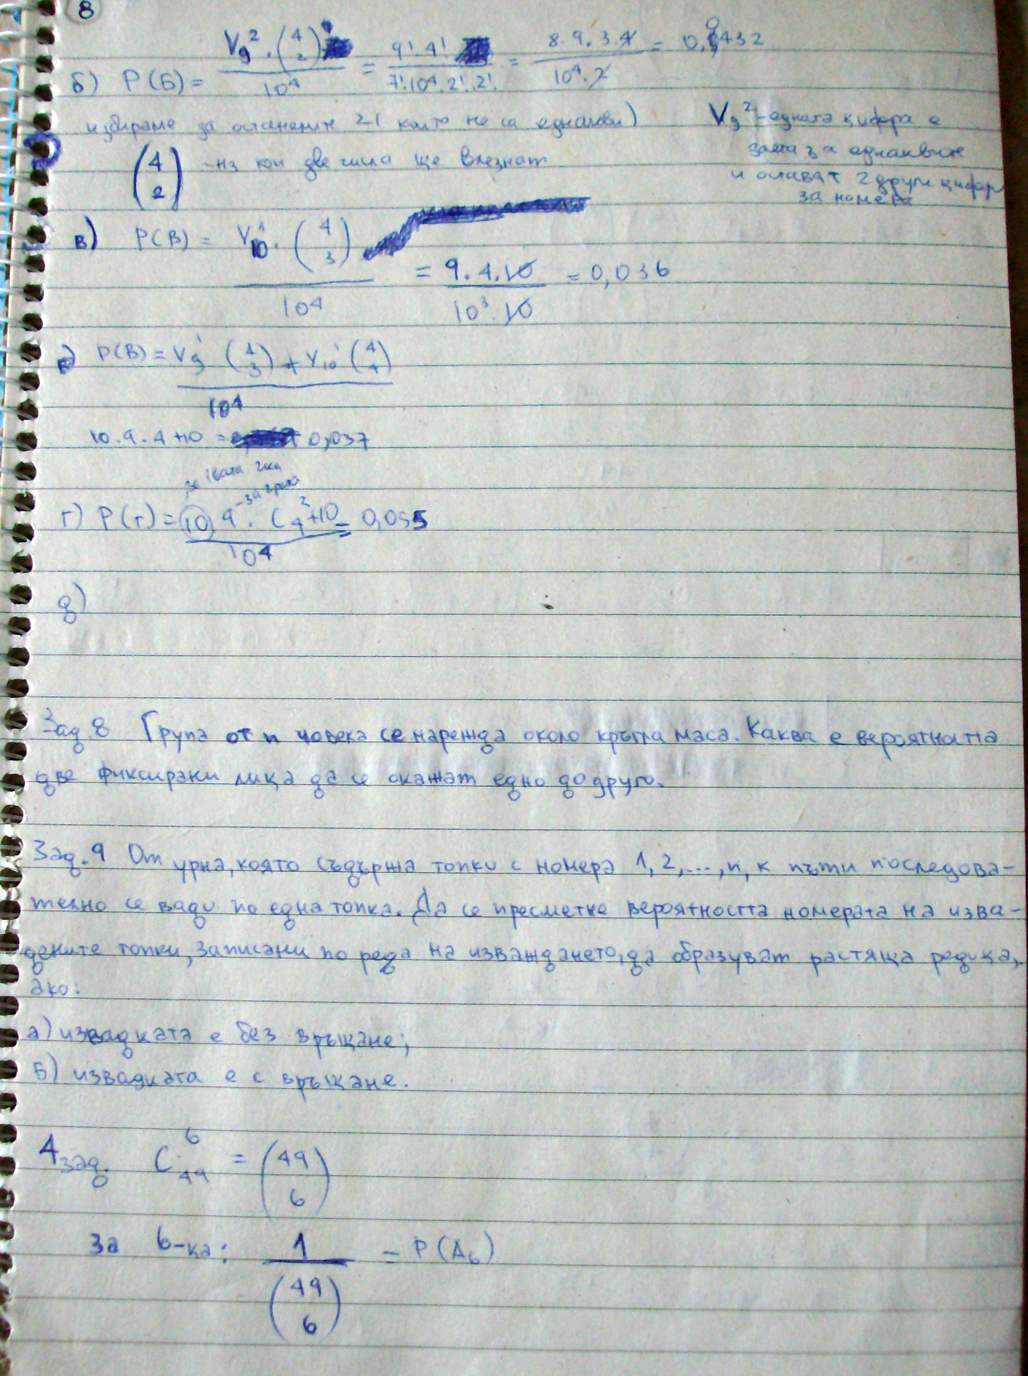 8
б) P(Б) = V₉² . (4 2) / 10⁴ = 9! 4! / 7! 10⁴ . 2! . 2! = 8 . 9 . 3 . 4 / 10⁴ . 2 = 0,0432
избираме за останалите 2 ( които не са еднакви )
V₉² - едната цифра е
заета за еднаквите
и остават 2 други цифри
за номера
(4 2) - на кои две числа ще влезнат
в) P(В) = V₁₀¹ . (4 3) / 10⁴ = 9 . 4 . 10 / 10³ . 10 = 0,036
P(В) = V₉¹ (4 3) + V₁₀¹ (4 4) / 10⁴
10 . 9 . 4 + 10 = 0,037
за
г) P(г) = 10 9 . C₄² + 10 / 10⁴ = 0,055
д)
Зад 8 Група от n човека се нарежда около кръгла маса. Каква е вероятността
две фиксирани лица да се окажат едно до друго.
Зад. 9 От урна, която съдържа топки с номера 1, 2, ..., n, к пъти последова-
телно се вади по една топка. Да се пресметне вероятността номерата на изва-
дените топки, записани по реда на изваждането, да образуват растяща редица,
ако:
а) извадката е без връщане;
Б) извадката е с връщане.
4 зад. C₄₉⁶ = (49 6)
За 6-ка: 1 / (49 6) = P(A₆)